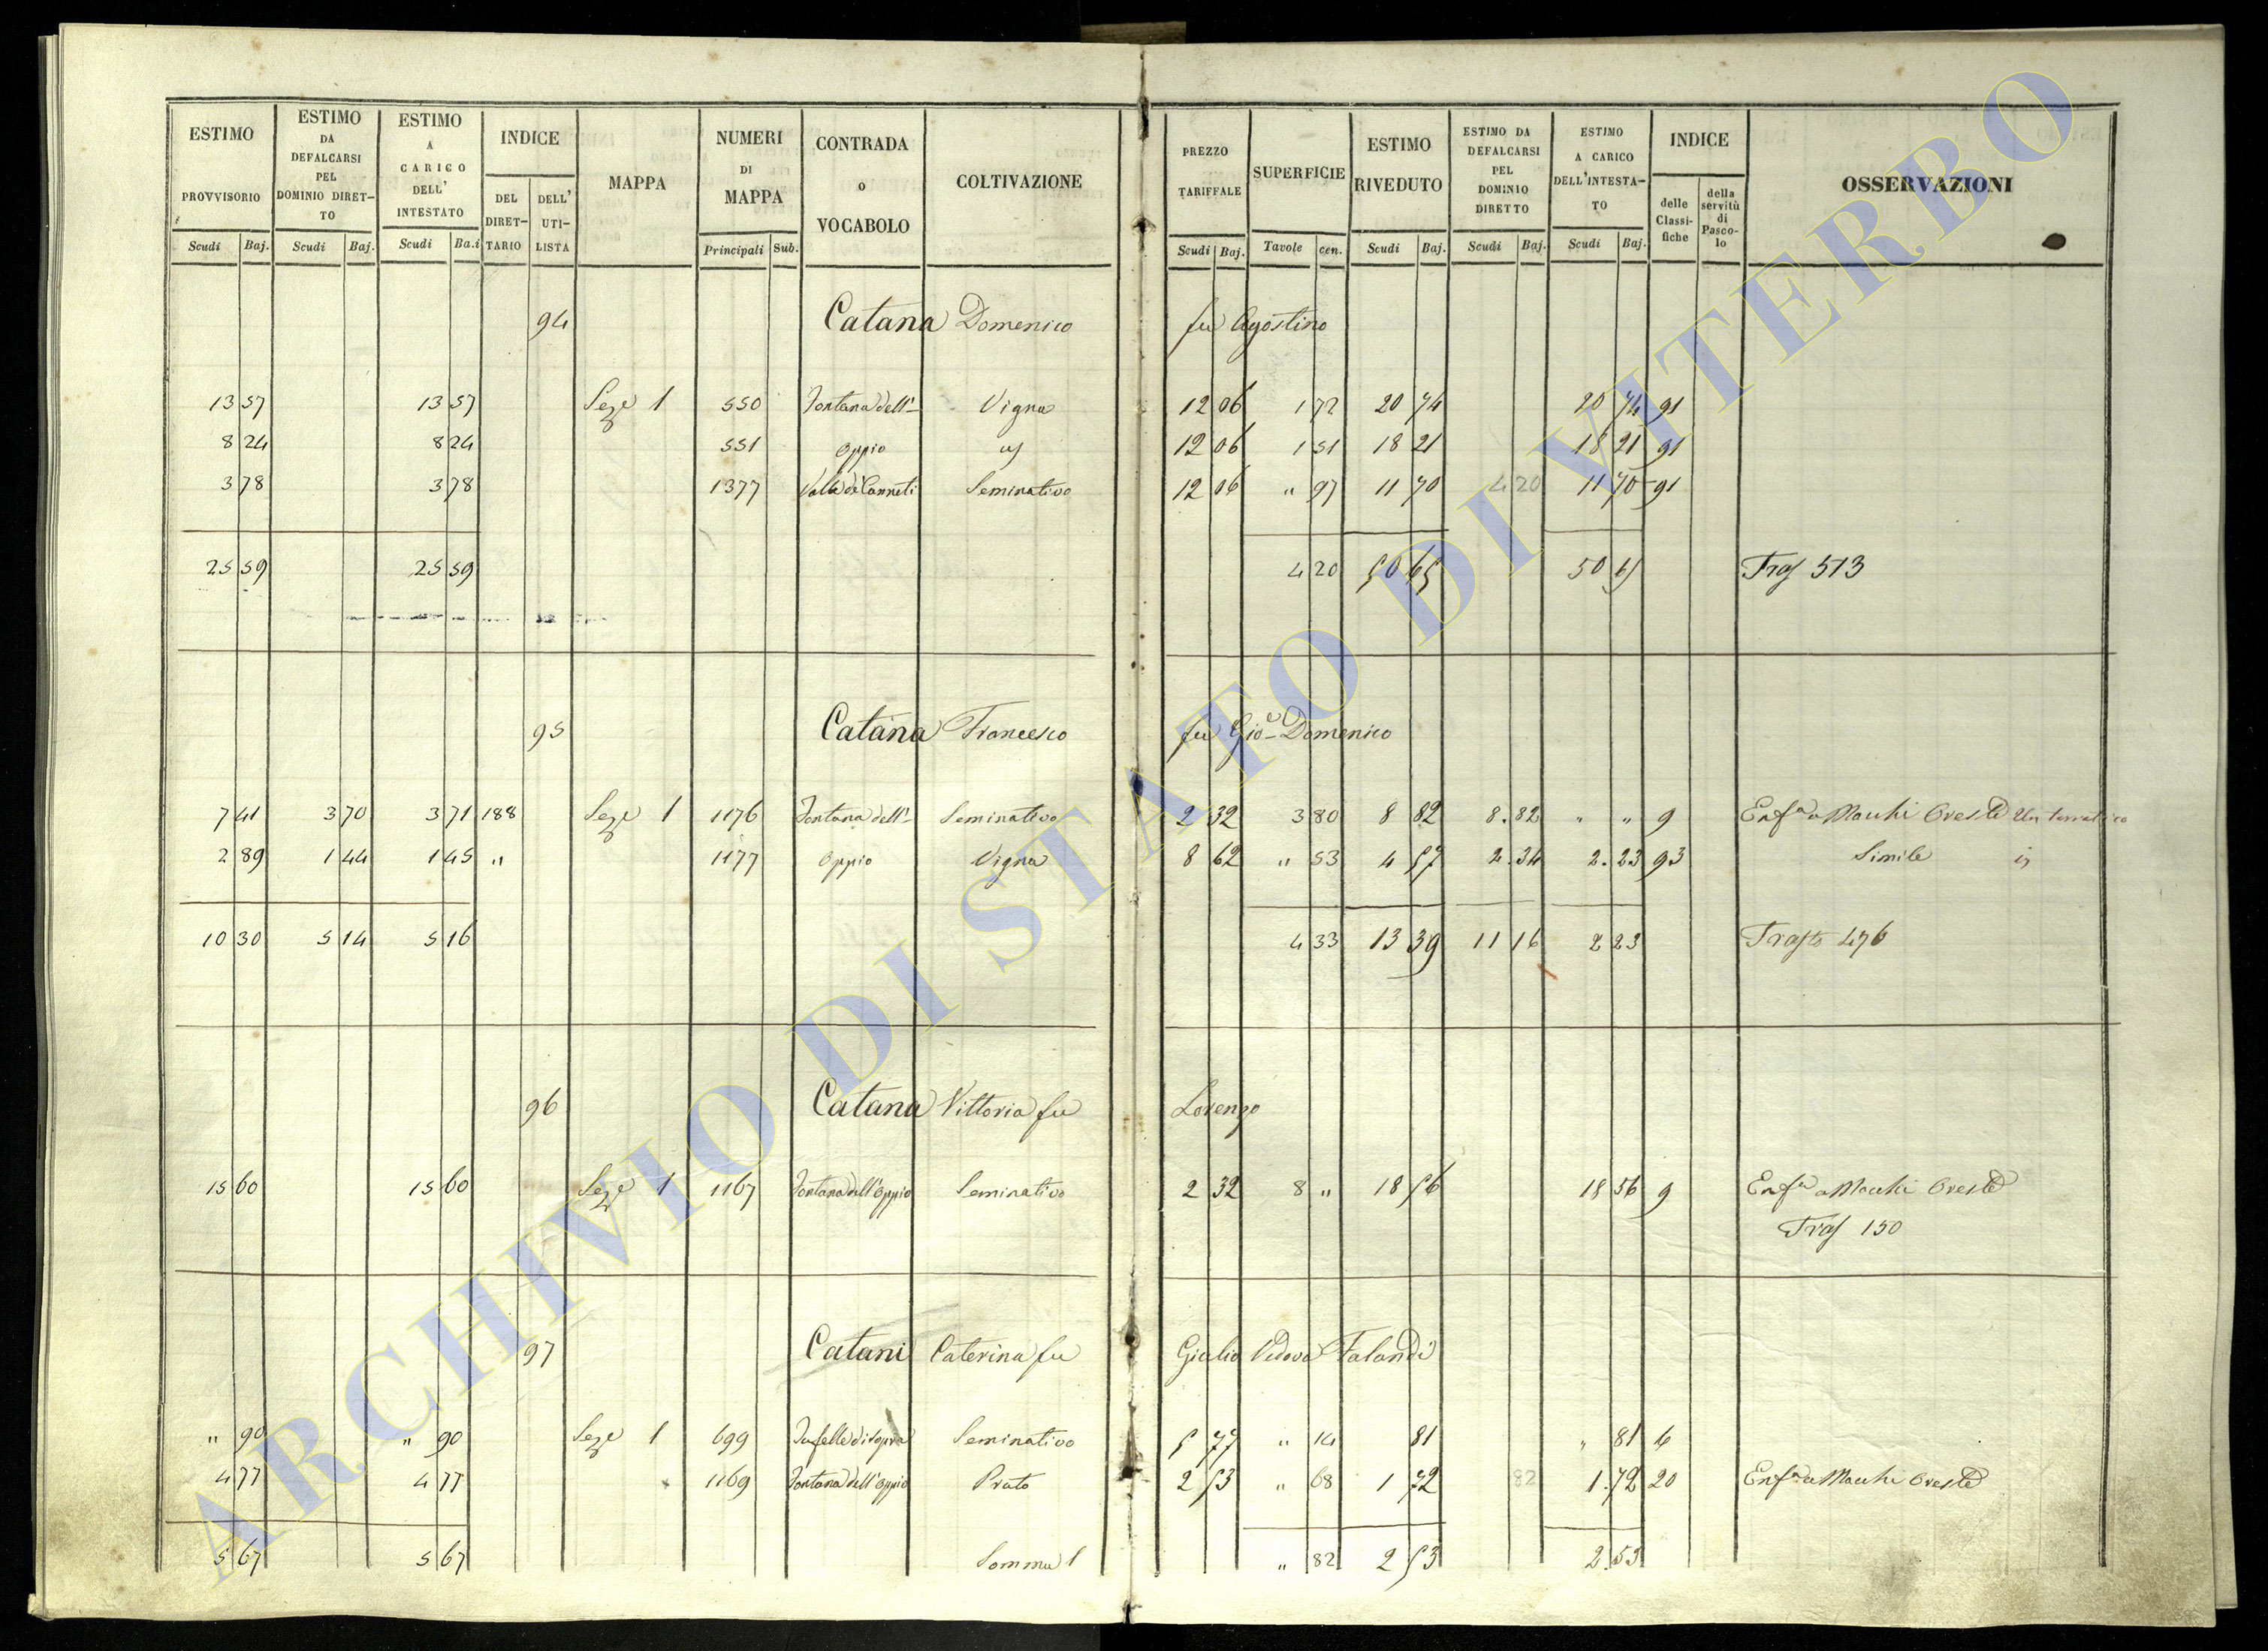 ESTIMO PROVVISORIO Scudi Baj.
ESTIMO DA DEFALCARSI PEL DOMINIO DIRETTO Scudi Baj.
ESTIMO A CARICO DELL' INTESTATO Scudi Ba.i
INDICE DEL DIRETTARIO DELL' UTILISTA
MAPPA
NUMERI DI MAPPA Principali Sub.
CONTRADA O VOCABOLO
COLTIVAZIONE
PREZZO TARIFFALE Scudi Baj.
SUPERFICIE Tavole cen.
ESTIMO RIVEDUTO Scudi Baj.
ESTIMO DA DEFALCARSI PEL DOMINIO DIRETTO Scudi Baj.
ESTIMO A CARICO DELL'INTESTATO Scudi Baj.
INDICE delle Classifiche della servitù di Pascolo
OSSERVAZIONI
94 Catana Domenico fu Agostino
13 57 13 57 Seze 1 550 Fontana dell'- Vigna 12 06 1 72 20 74 20 74 91
8 24 8 24 551 Oppio 12 06 1 51 18 21 18 21 91
3 78 3 78 1377 Valle de Canneti Seminativo 12 06 " 97 11 70 4 20 11 70 91
25 59 25 59 4 20 50 65 50 65 Tras 513
95 Catana Francesco fu Gio Domenico
7 41 3 70 3 71 188 Seze 1 1176 Fontana dell'- Seminativo 2 32 3 80 8 82 8.82 " " 9 Enfa a Macchi Oreste
2 89 1 44 1 45 " 1177 Oppio Vigna 8 62 " 53 4 57 2.34 2.23 93 Simile
10 30 5 14 5 16 4 33 13 39 11 16 2 23 Trasto 476
96 Catana Vittoria fu Lorenzo
15 60 15 60 Seze 1 1167 Fontana dell'Oppio Seminativo 2 32 8 " 18 56 18 56 9 Enfa a Macchi Oreste
Tras 150
97 Catani Caterina fu Giulio Vedova Falandi
" 90 " 90 Seze 1 699 Seminativo 5 77 " 14 81 " 81 6
4 77 4 77 1169 Fontana dell'Oppio Prato 2 53 " 68 1 72 82 1.72 20 Enfa a Macchi Oreste
5 67 5 67 Somma 1 " 82 2 53 2.53
ARCHIVIO DI STATO DI VITERBO